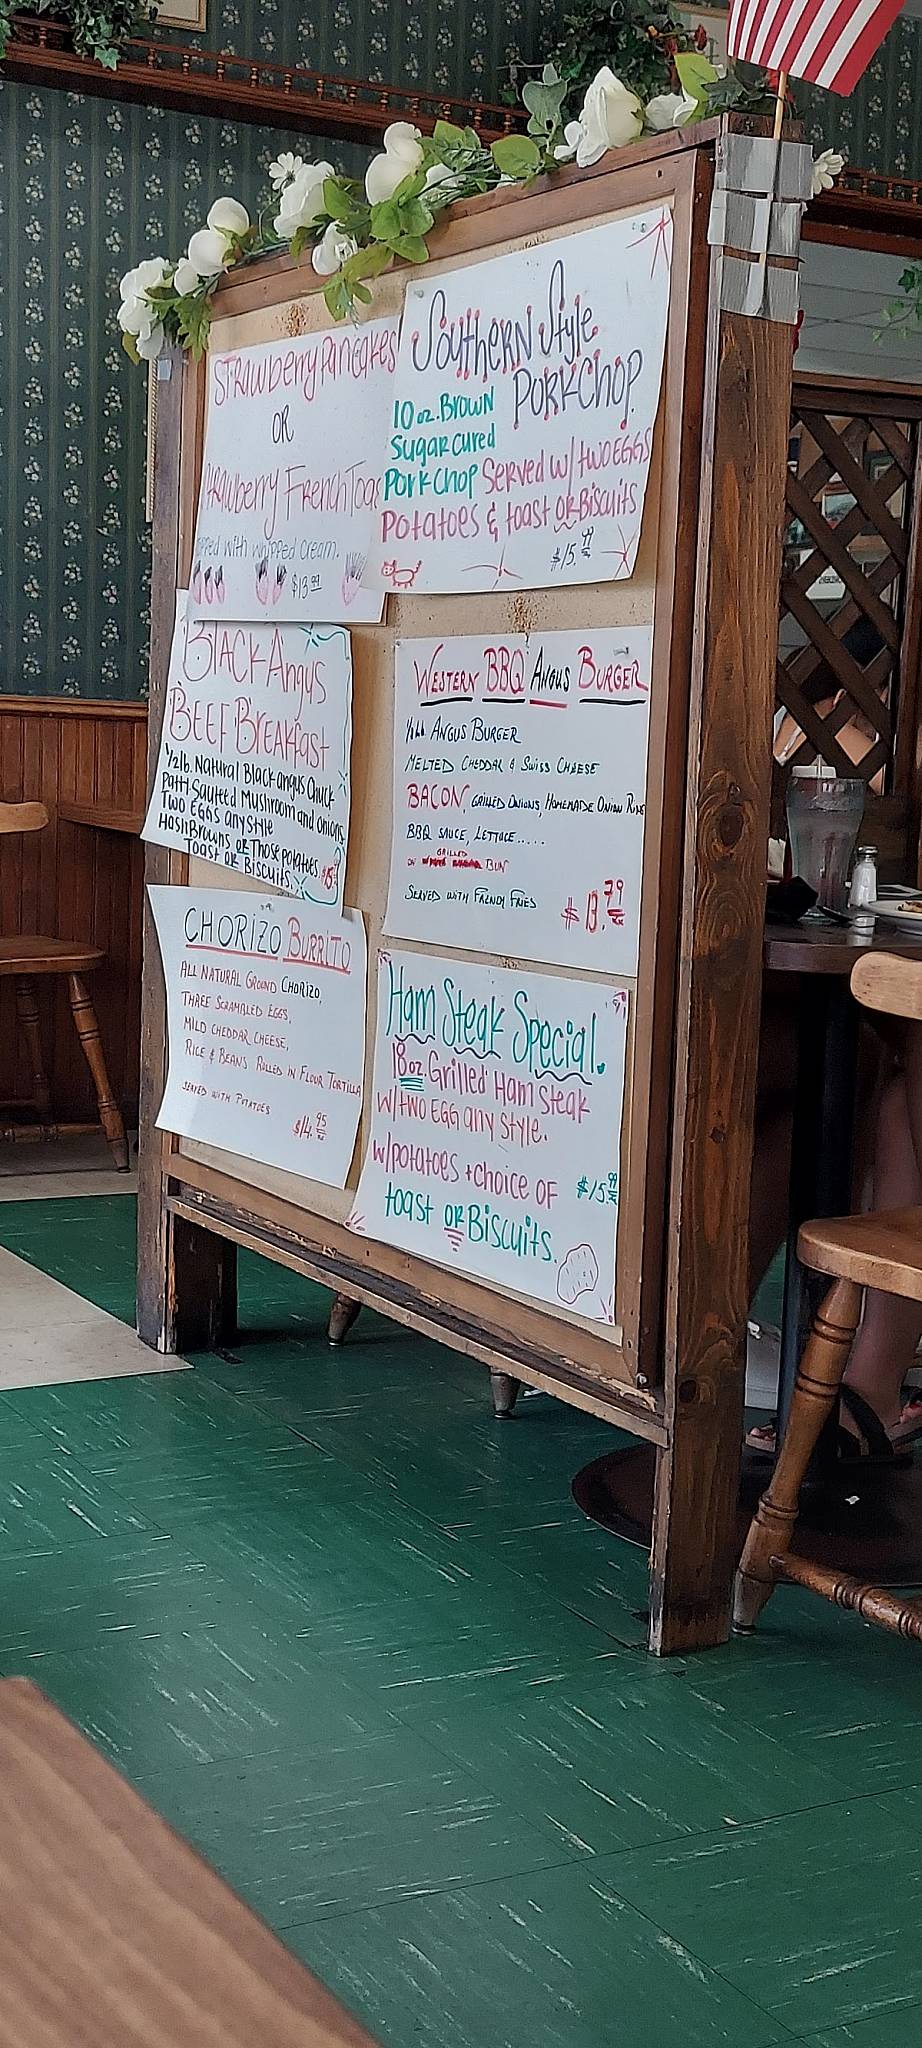 Strawberry Pancakes
OR
Strawberry French Toas
opped with whipped cream.
$13.99
Southern Style
Pork Chop
10 oz. Brown
Sugar cured
Pork Chop Served w/ two EGGS
Potatoes & toast OR Biscuits
$15.99
Black Angus
Beef Breakfast
1/2 lb. Natural Black angus Chuck
Patti Sauteed Mushroom and onions
Two Eggs any style
Hash Browns OR Those potatoes.
Toast OR Biscuits.
Western BBQ Angus Burger
Angus Burger
Melted Cheddar & Swiss Cheese
BACON, Grilled Onions, Homemade Onion Ring
BBQ Sauce, Lettuce.....
Grilled
on Bun
Served with French Fries
$13.79
CHORIZO BURRITO
All Natural Ground Chorizo,
Three Scrambled Eggs,
Mild Cheddar Cheese,
Rice & Beans Rolled in Flour Tortilla
Served with Potatoes
$14.95
Ham Steak Special.
18 oz. Grilled Ham Steak
w/ two EGG any style.
w/potatoes + choice OF
toast OR Biscuits.
$15.99